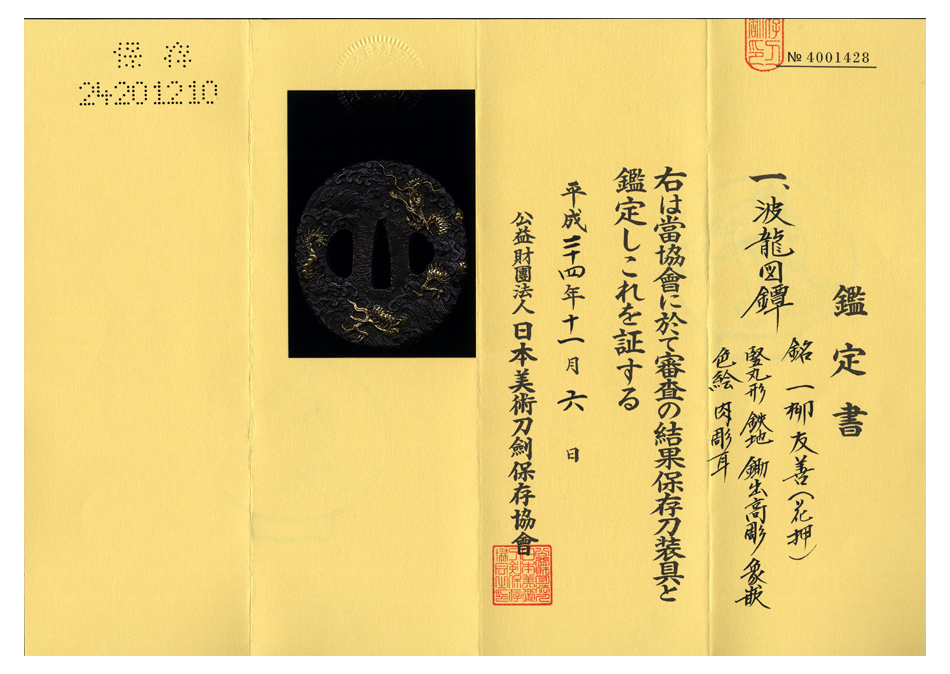 № 4001428
鑑定書
一、波龍図鐔
銘 一柳友善(花押)
竪丸形 鉄地 鋤出高彫 象嵌
色絵 肉彫耳
右は當協會に於て審査の結果保存刀装具と
鑑定しこれを証する
平成二十四年十一月六日
公益財團法人 日本美術刀劍保存協會
保存
24201210